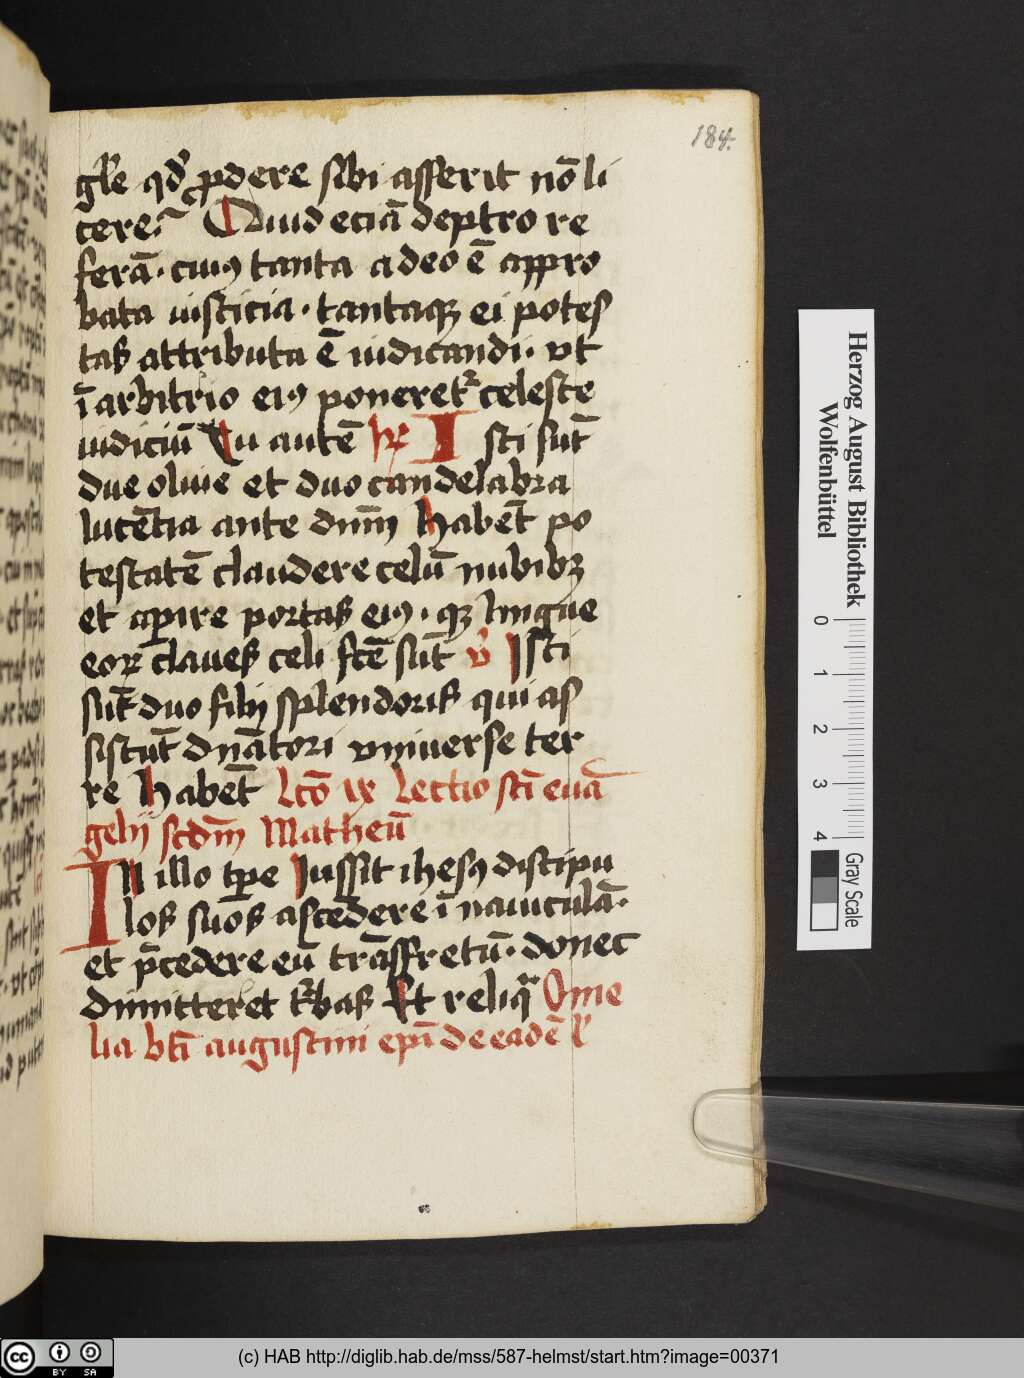 184.
gl'e qd' ꝓdere sibi asserit nō li
cere. Quid eciā de petro re
ferā. cuiꝰ tanta adeo ē appro
bata iusticia. tantaqꝫ ei potes
tas attributa ē iudicandi. vt
ī arbitrio eiꝰ poneret' celeste
iudiciū Tu autē Isti sūt
due oliue et duo candelabra
lucētia ante dnm̄ habēt po
testatē claudere celū nubibꝫ
et aꝑire portas eiꝰ. qꝫ lingue
eoꝝ claues celi fc̄e sūt v̓ Isti
sūt duo filij splendoris qui as
sistūt dnātori vniuerse ter
re habēt Lc̄o ix Lectio sc̄i euā
gelij scdm̄ Matheū
IN illo tꝑe Iussit ihesꝰ discipu
los suos ascedere ī nauiculā.
et p̄cedere eū trāsfretū. donec
dimitteret t'bas Et reliqͣ Ome
lia bt̄i augustini epī de eadē l'
Herzog August Bibliothek
Wolfenbüttel
0 1 2 3 4
Gray Scale
cc BY SA
(c) HAB http://diglib.hab.de/mss/587-helmst/start.htm?image=00371